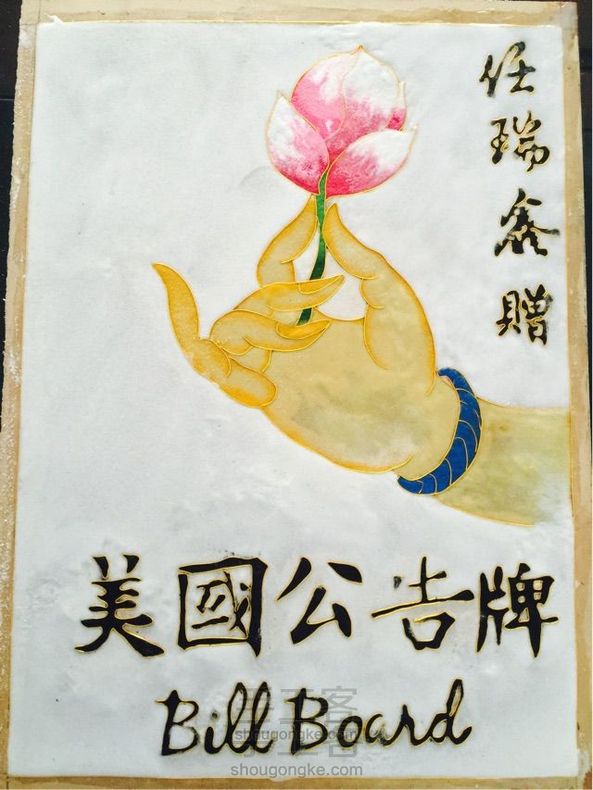 任瑞鑫贈
美國公告牌
Bill Board
手工客
shougongke.com